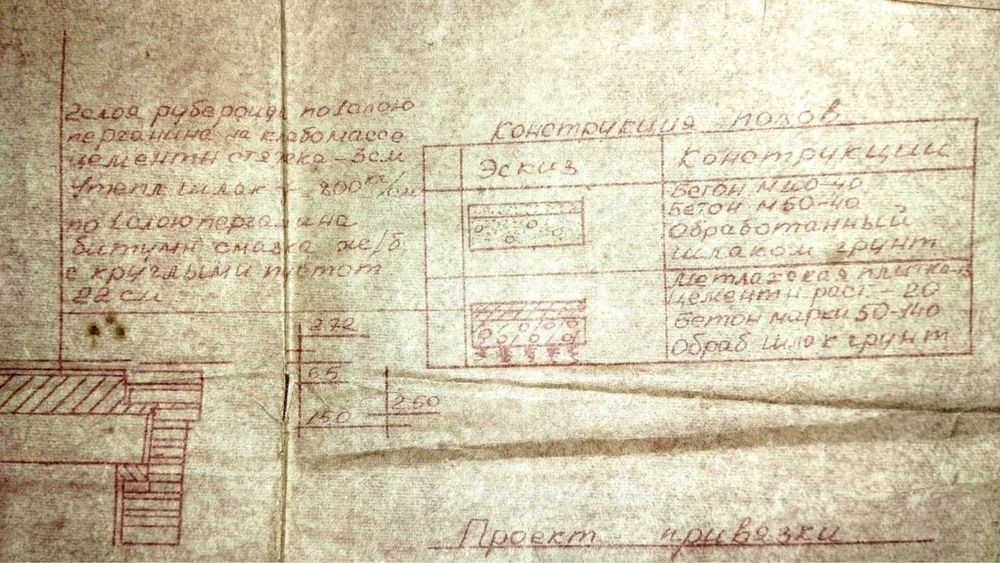 2 слоя рубероида по 1 слою
пергамина на клабомассе
цементн стяжка-3см
Утепл шлак γ-800кг/
по 1 слою пергамина
битумн смазка ж/б
с круглыми пустот
22 см
2.72
6.5
15.0
2.60
Конструкция полов
Эскиз
Конструкции
Бетон м100-40
Бетон м50-40
Обработанный
шлаком грунт
Метлахская плитка-
цементн раст-20
Бетон марки 50-
Обраб шлак грунт
Проект привязки